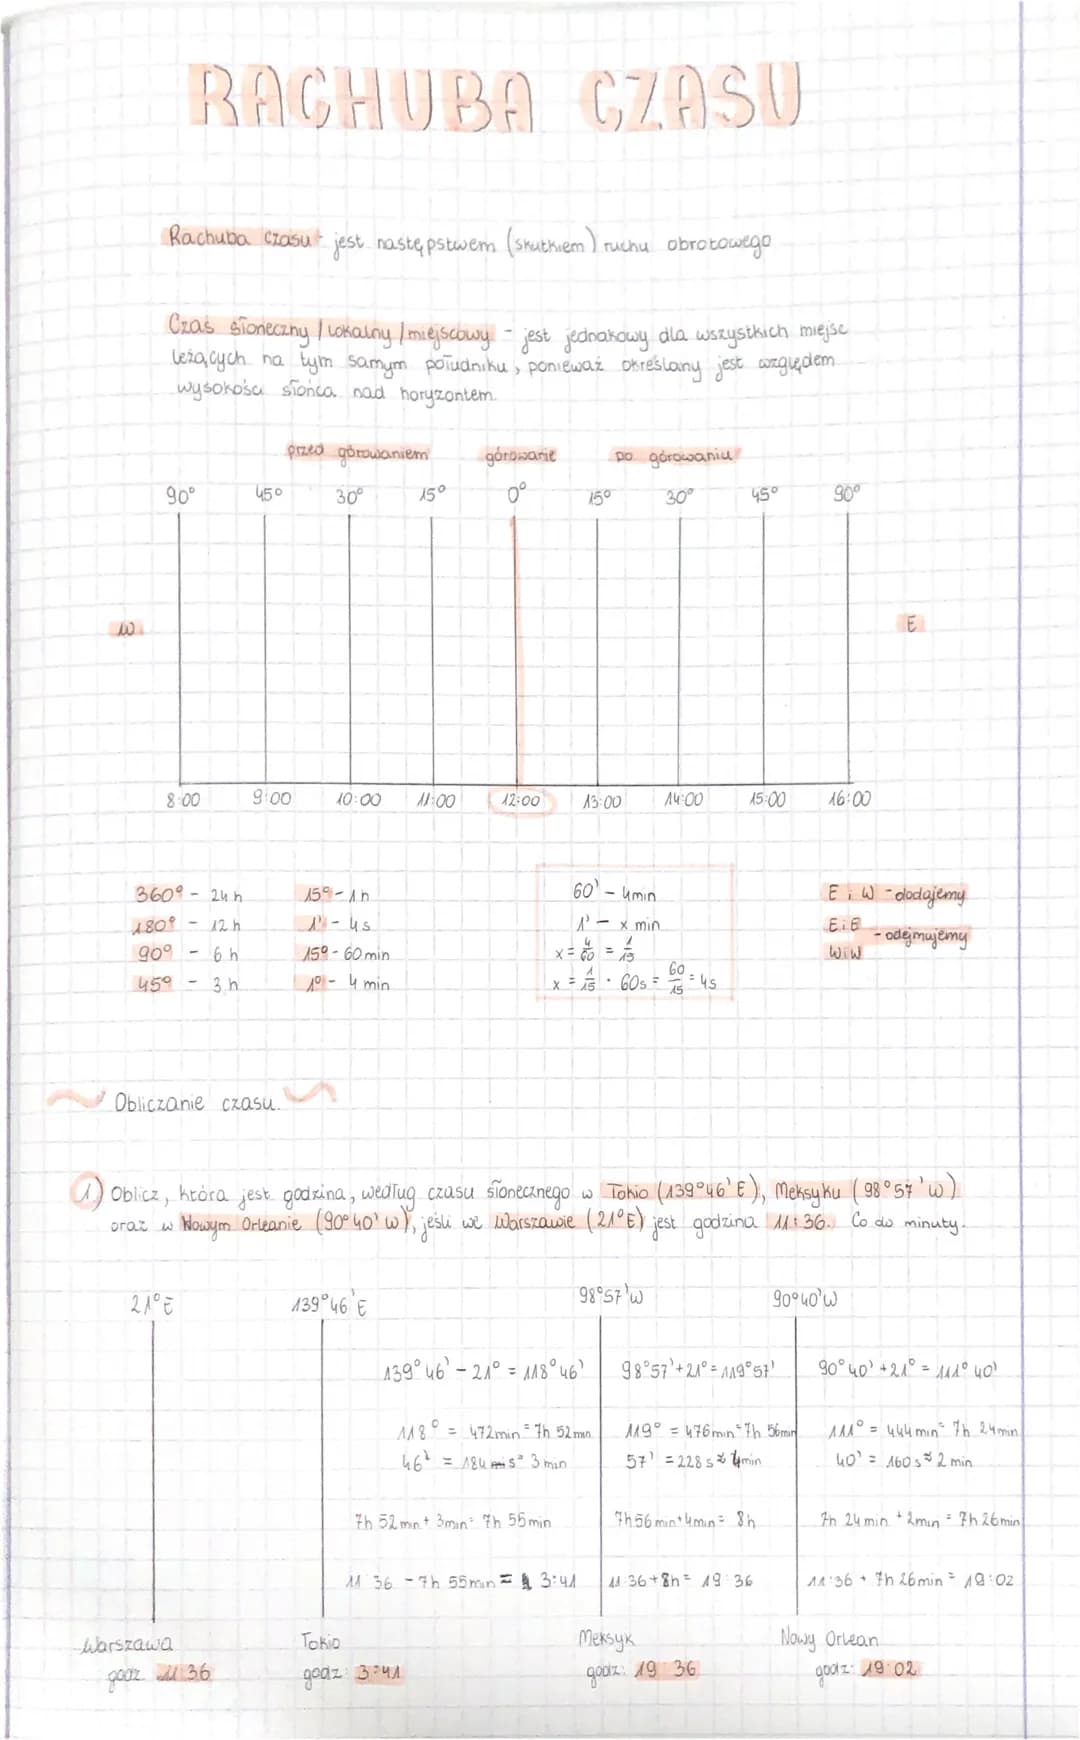 RACHUBA CZASU
Rachuba czasu - jest następstwem (skutkiem) ruchu obrotowego
Czas słoneczny / lokalny / miejscowy - jest jednakowy dla wszystkich miejsc
leżących na tym samym południku, ponieważ określany jest względem
wysokości słońca nad horyzontem.
przed górowaniem górowanie po górowaniu
90° 45° 30° 15° 0° 15° 30° 45° 90°
W E
8:00 9:00 10:00 11:00 12:00 13:00 14:00 15:00 16:00
360° - 24 h 15° - 1h 60' - 4min E i W - dodajemy
180° - 12 h 1' - 4s 1' - x min E i E
90° - 6 h 15° - 60 min x = 4/60 = 1/15 W i W - odejmujemy
45° - 3 h 1° - 4 min x = 1/15 · 60s = 60/15 = 4s
Obliczanie czasu.
1) Oblicz, która jest godzina, według czasu słonecznego w Tokio (139°46' E), Meksyku (98°57' W)
oraz w Nowym Orleanie (90°40' W), jeśli we Warszawie (21°E) jest godzina 11:36. Co do minuty.
21°E 139°46'E 98°57'W 90°40'W
139°46' - 21° = 118°46' 98°57' + 21° = 119°57' 90°40' + 21° = 111°40'
118° = 472min = 7h 52min 119° = 476min = 7h 56min 111° = 444min = 7h 24min
46' = 184 s ≈ 3 min 57' = 228 s ≈ 4min 40' = 160 s ≈ 2 min
7h 52min + 3min = 7h 55min 7h 56min + 4min = 8h 7h 24min + 2min = 7h 26min
11:36 - 7h 55min = 3:41 11:36 + 8h = 19:36 11:36 + 7h 26min = 19:02
Warszawa Tokio Meksyk Nowy Orlean
godz. 11:36 godz: 3:41 godz: 19:36 godz: 19:02